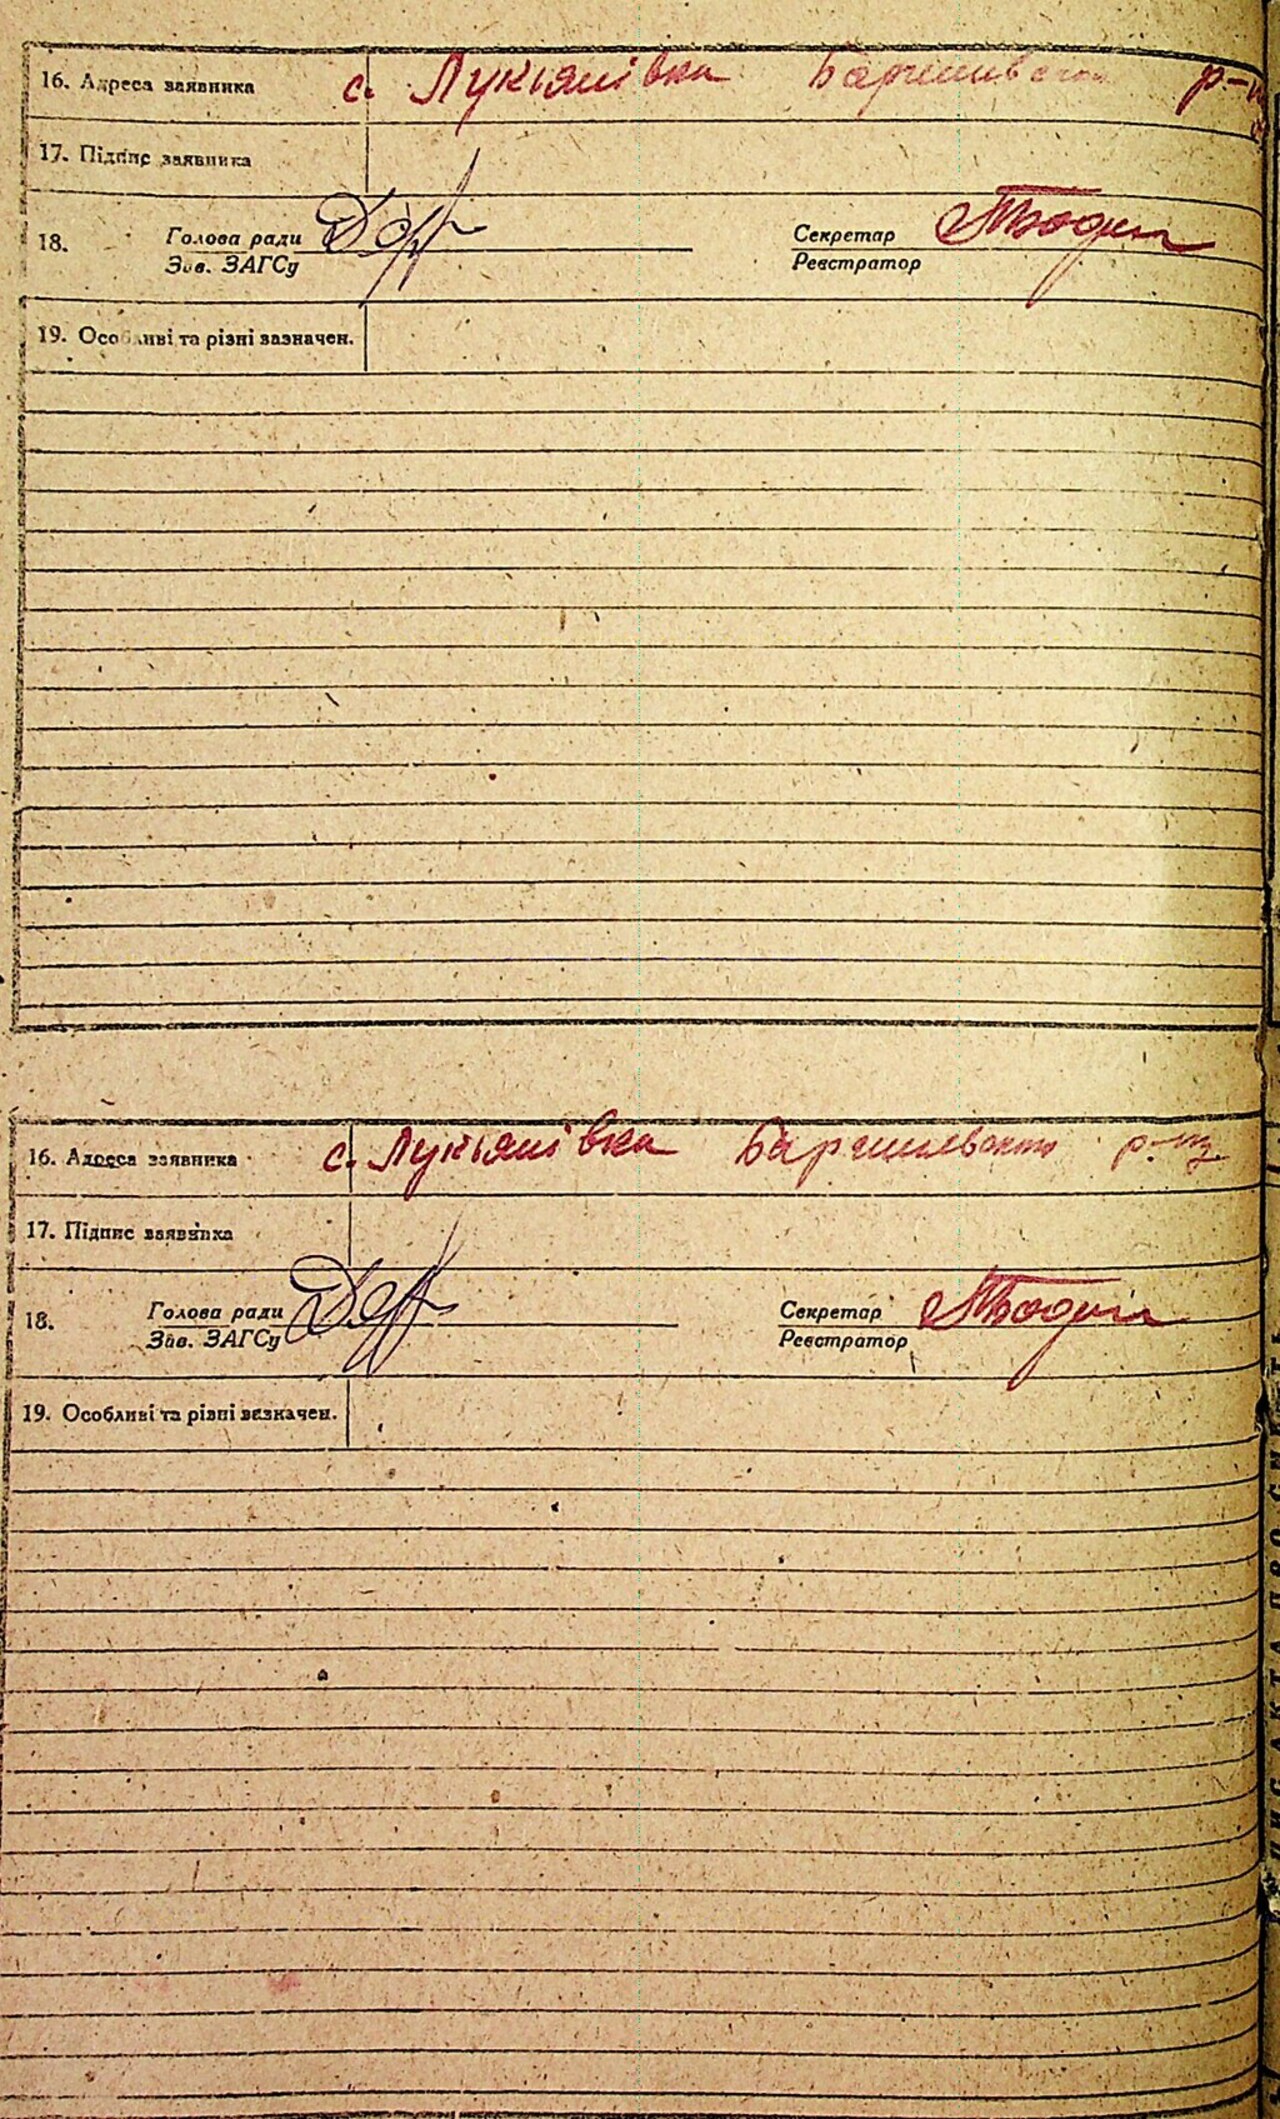 16. Адреса заявника с. Лукіянівка Баришивского р-н
17. Підпис заявника
18. Голова ради Секретар
Зав. ЗАГСу Реєстратор
19. Особливі та різні зазначен.
16. Адреса заявника с. Лукіянівка Баришивського р-ну
17. Підпис заявника
18. Голова ради Секретар
Зав. ЗАГСу Реєстратор
19. Особливі та різні зазначен.